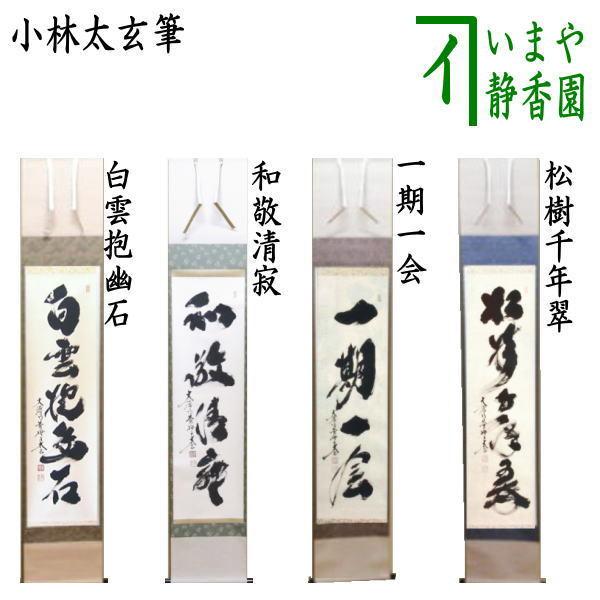 小林太玄筆
いまや
静香園
白雲抱幽石
和敬清寂
一期一会
松樹千年翠
白雲抱幽石
和敬清寂
一期一会
松樹千年翠